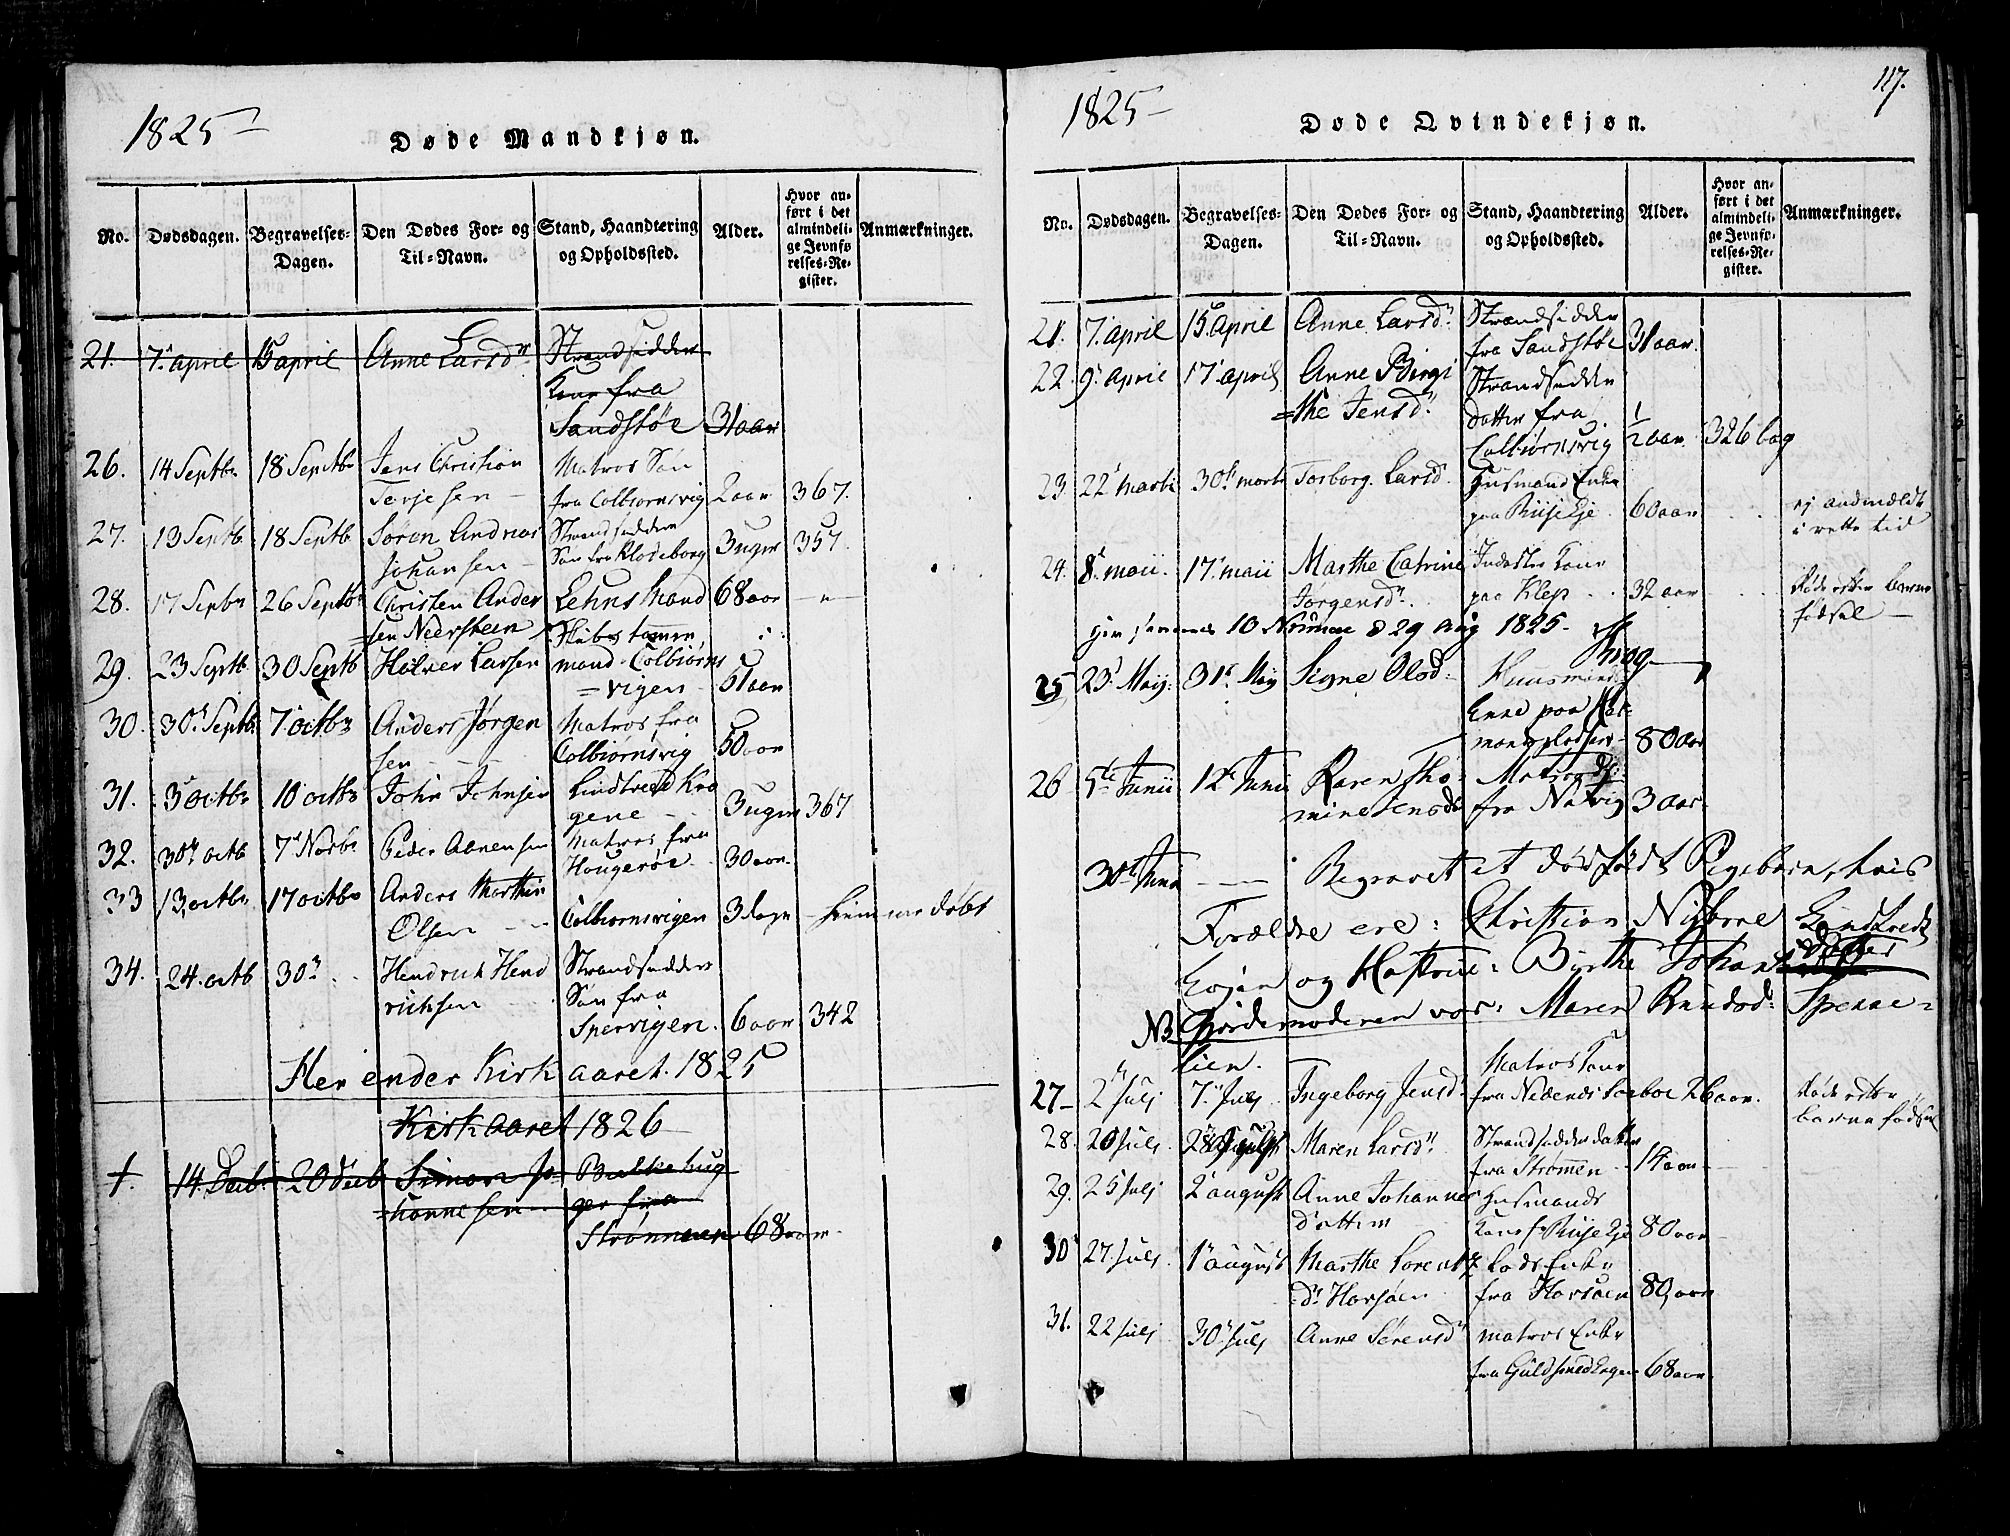 1825
Døde Mandkjøn.
No. Dødsdagen. Begravelses-Dagen. Den Dødes For- og Til-Navn. Stand, Haandtering og Opholdssted. Alder. Hvor anført i det almindelige Jevnførelses-Register. Anmærkninger.
21. 7. april 15 april Anne Larsdr. Strandsidder
Kone fra
Sandstøe 31 aar
26. 14 Septbr 18 Septbr Jens Christian Matros Søn
Terjesen fra Colbiornsvig 2 aar 367.
27. 13 Septb 18 Septb Søren Andreas Strandsidder
Johansen Søn fra Klodeborg 3 uger 357.
28. 17 Septbr 26 Septbr Christen Ander Lehns Mand 68 aar
=sen Neersteen
29. 23 Septb. 30 Septb Halver Larsen Skibstømmer
mand Colbiørns
=vigen 51 aar
30. 30 Septb. 7. octbr Anders Jørgen Matros fra
sen Colbiørnsvig 50 aar
31. 3 octbr 10 octbr John Johnsen Lindtved Kro
gene 3 uger 367
32. 30 octb 7 Novbr Peder Aanensen Matros fra
Hougerøe 30 aar.
33 13 octbr 17 octbr Anders Marthin
Olsen Colbiornsvigen 3 dage hiemmedøbt
34. 24. octb 30 Hendrich Hend Strandsidders
richsen Søn fra
Spervigen. 6 aar 342
Her ender Kirkaaret. 1825
Kirkaaret 1826
1. 14 Decb. 20 decb Simon Jo Balkehug
=hannesen ger fra
Strømmen 68 aar
117.
1825
Døde Qvindekjøn.
No. Dødsdagen. Begravelses-Dagen. Den Dødes For- og Til-Navn. Stand, Haandtering og Opholdssted. Alder. Hvor anført i det almindelige Jevnførelses-Register. Anmærkninger.
21. 7. april 15. april Anne Larsdr. Strandsidder
fra Sandstøe 31 aar.
22. 9. april 17. april Anne Birgi Strandsidder
=the Jensdr. datter fra
Colbiørnsvig 1/2 aar 326 bag
23. 22 marti 30 marti Torborg Larsd. Husmand Enke
paa Riise Eje 60 aar ej andmældt
i rette tid
24. 8. maii. 17. maii Marthe Catrine Inderster Kone
Jorgensdr. paa Klep 32 aar døde efter barne
fødsel
10 d 29 Aug 1825.
25 23. Maij: 31. Maij Signe Olsd: Huusmands
Enke paa
80 aar
26 5te Junii 12te Junii Karen Tho= Matros D.
mine Jensd. fra Narvig 3 aar.
30te Junii Begravet et dødfødt Pigebarn, hvis
Forældre ere: Christian Nyborne Lindtveds
Eejer og Hustrue: Byrthe Johans datter
NB Giordemoderen var: Maren Knudsd: Spenne=
lien.
27 2 Julj 7. Julj Ingeborg Jensd. Matros Kone
fra Nedenes 26 aar. døde efter
barnefødsel
28. 20 Julj 28 Maren Larsdr. Strandsidder datter
fra Strømmen 14 aar
29. 25 Julj 2 august Anne Johannes Husmands
datter Kone fr Riise Eje 80 aar
30 27. Julj 1 august Marthe Lorentz Lods Enke
dr Havsøen fra Havsøen 80 aar
31. 22 Julj 30 Julj Anne Sørensd matros Enke
fra Guldsmedengen 68 aar.